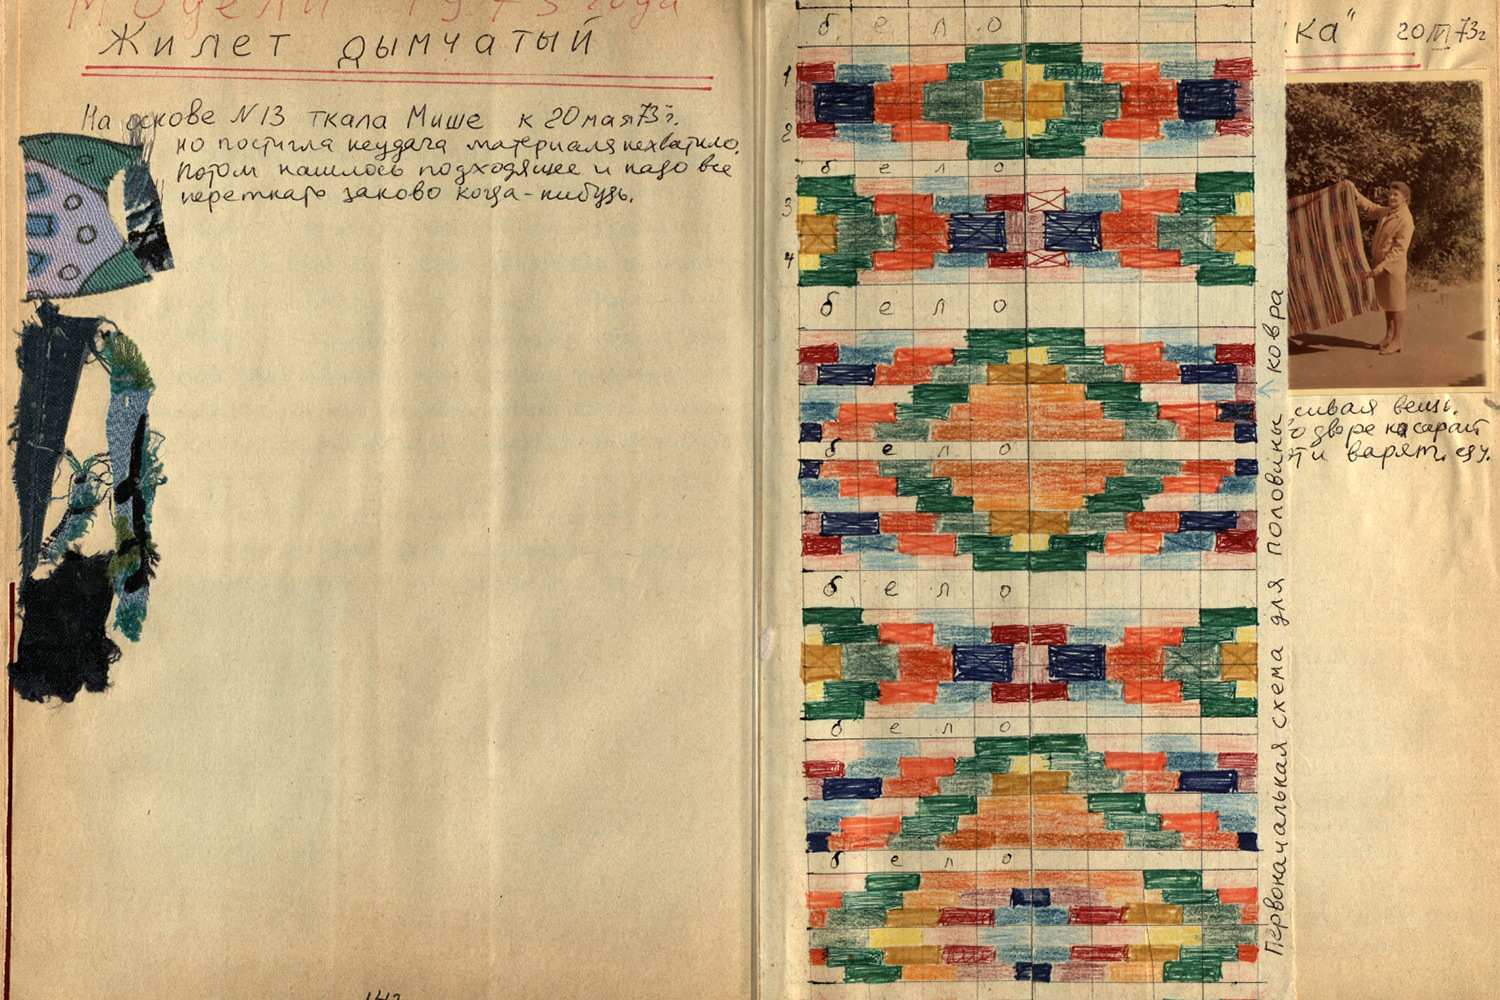 Модели 1973 года
Жилет дымчатый
На основе N 13 ткала Мише к 20 мая 73 г.
но постигла неудача материала нехватило.
Потом нашлось подходящее и надо все
переткать заново когда-нибудь.
бело
1
2
бело
3
4
бело
бело
бело
бело
бело
Первоначальная схема для половины ковра
ка" 20 III 73 г
сивая вещь.
о дворе на сарай
и варят еду.